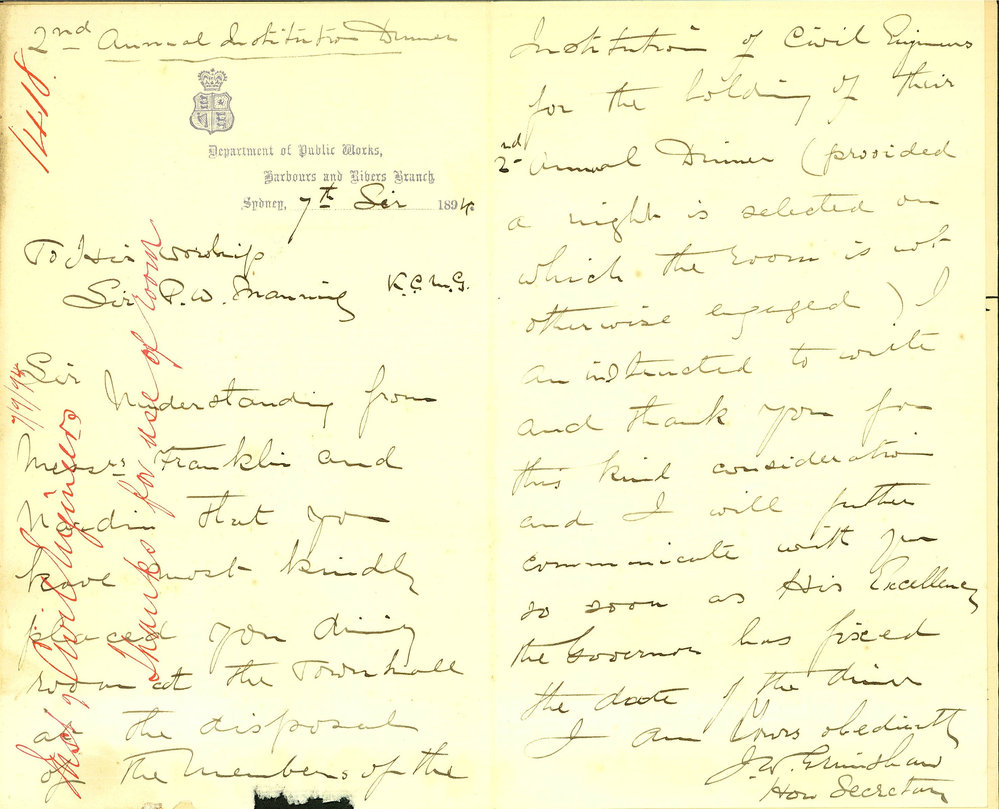 2nd Annual Institution Dinner
1418
Department of Public Works,
Harbours and Rivers Branch
Sydney, 7th Ser 1894
To His Worship
Sir P. W. Manning K.C.M.G.
Sir
Understanding from
Messrs Franklin and
that you
have most kindly
placed your dining
room at the Townhall
at the disposal
of the Members of the
Institution of Civil Engineers
for the holding of their
2nd Annual Dinner (provided
a night is selected on
which the room is not
otherwise engaged) I
am instructed to write
and thank you for
this kind consideration
and I will further
communicate with you
so soon as His Excellency
the Governor has fixed
the date of the dinner
I am Yours obediently
J. W. Grimshaw
Hon Secretary
7/9/94
Inst of Civil Engineers
thanks for use of room